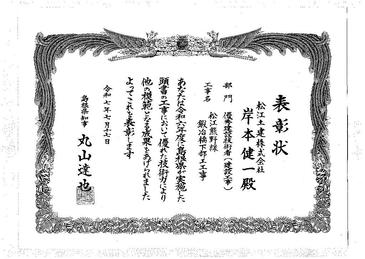 表彰状
松江土建株式会社
岸本健一殿
部門 優秀建設技術者(建設工事)
工事名 松江熊野線
鍛冶橋下部工工事
あなたは令和六年度に島根県が実施した
頭書の工事において優れた技術力により
他の模範となる成果をあげられました
よってこれを表彰します
令和七年七月十七日
島根県知事 丸山達也